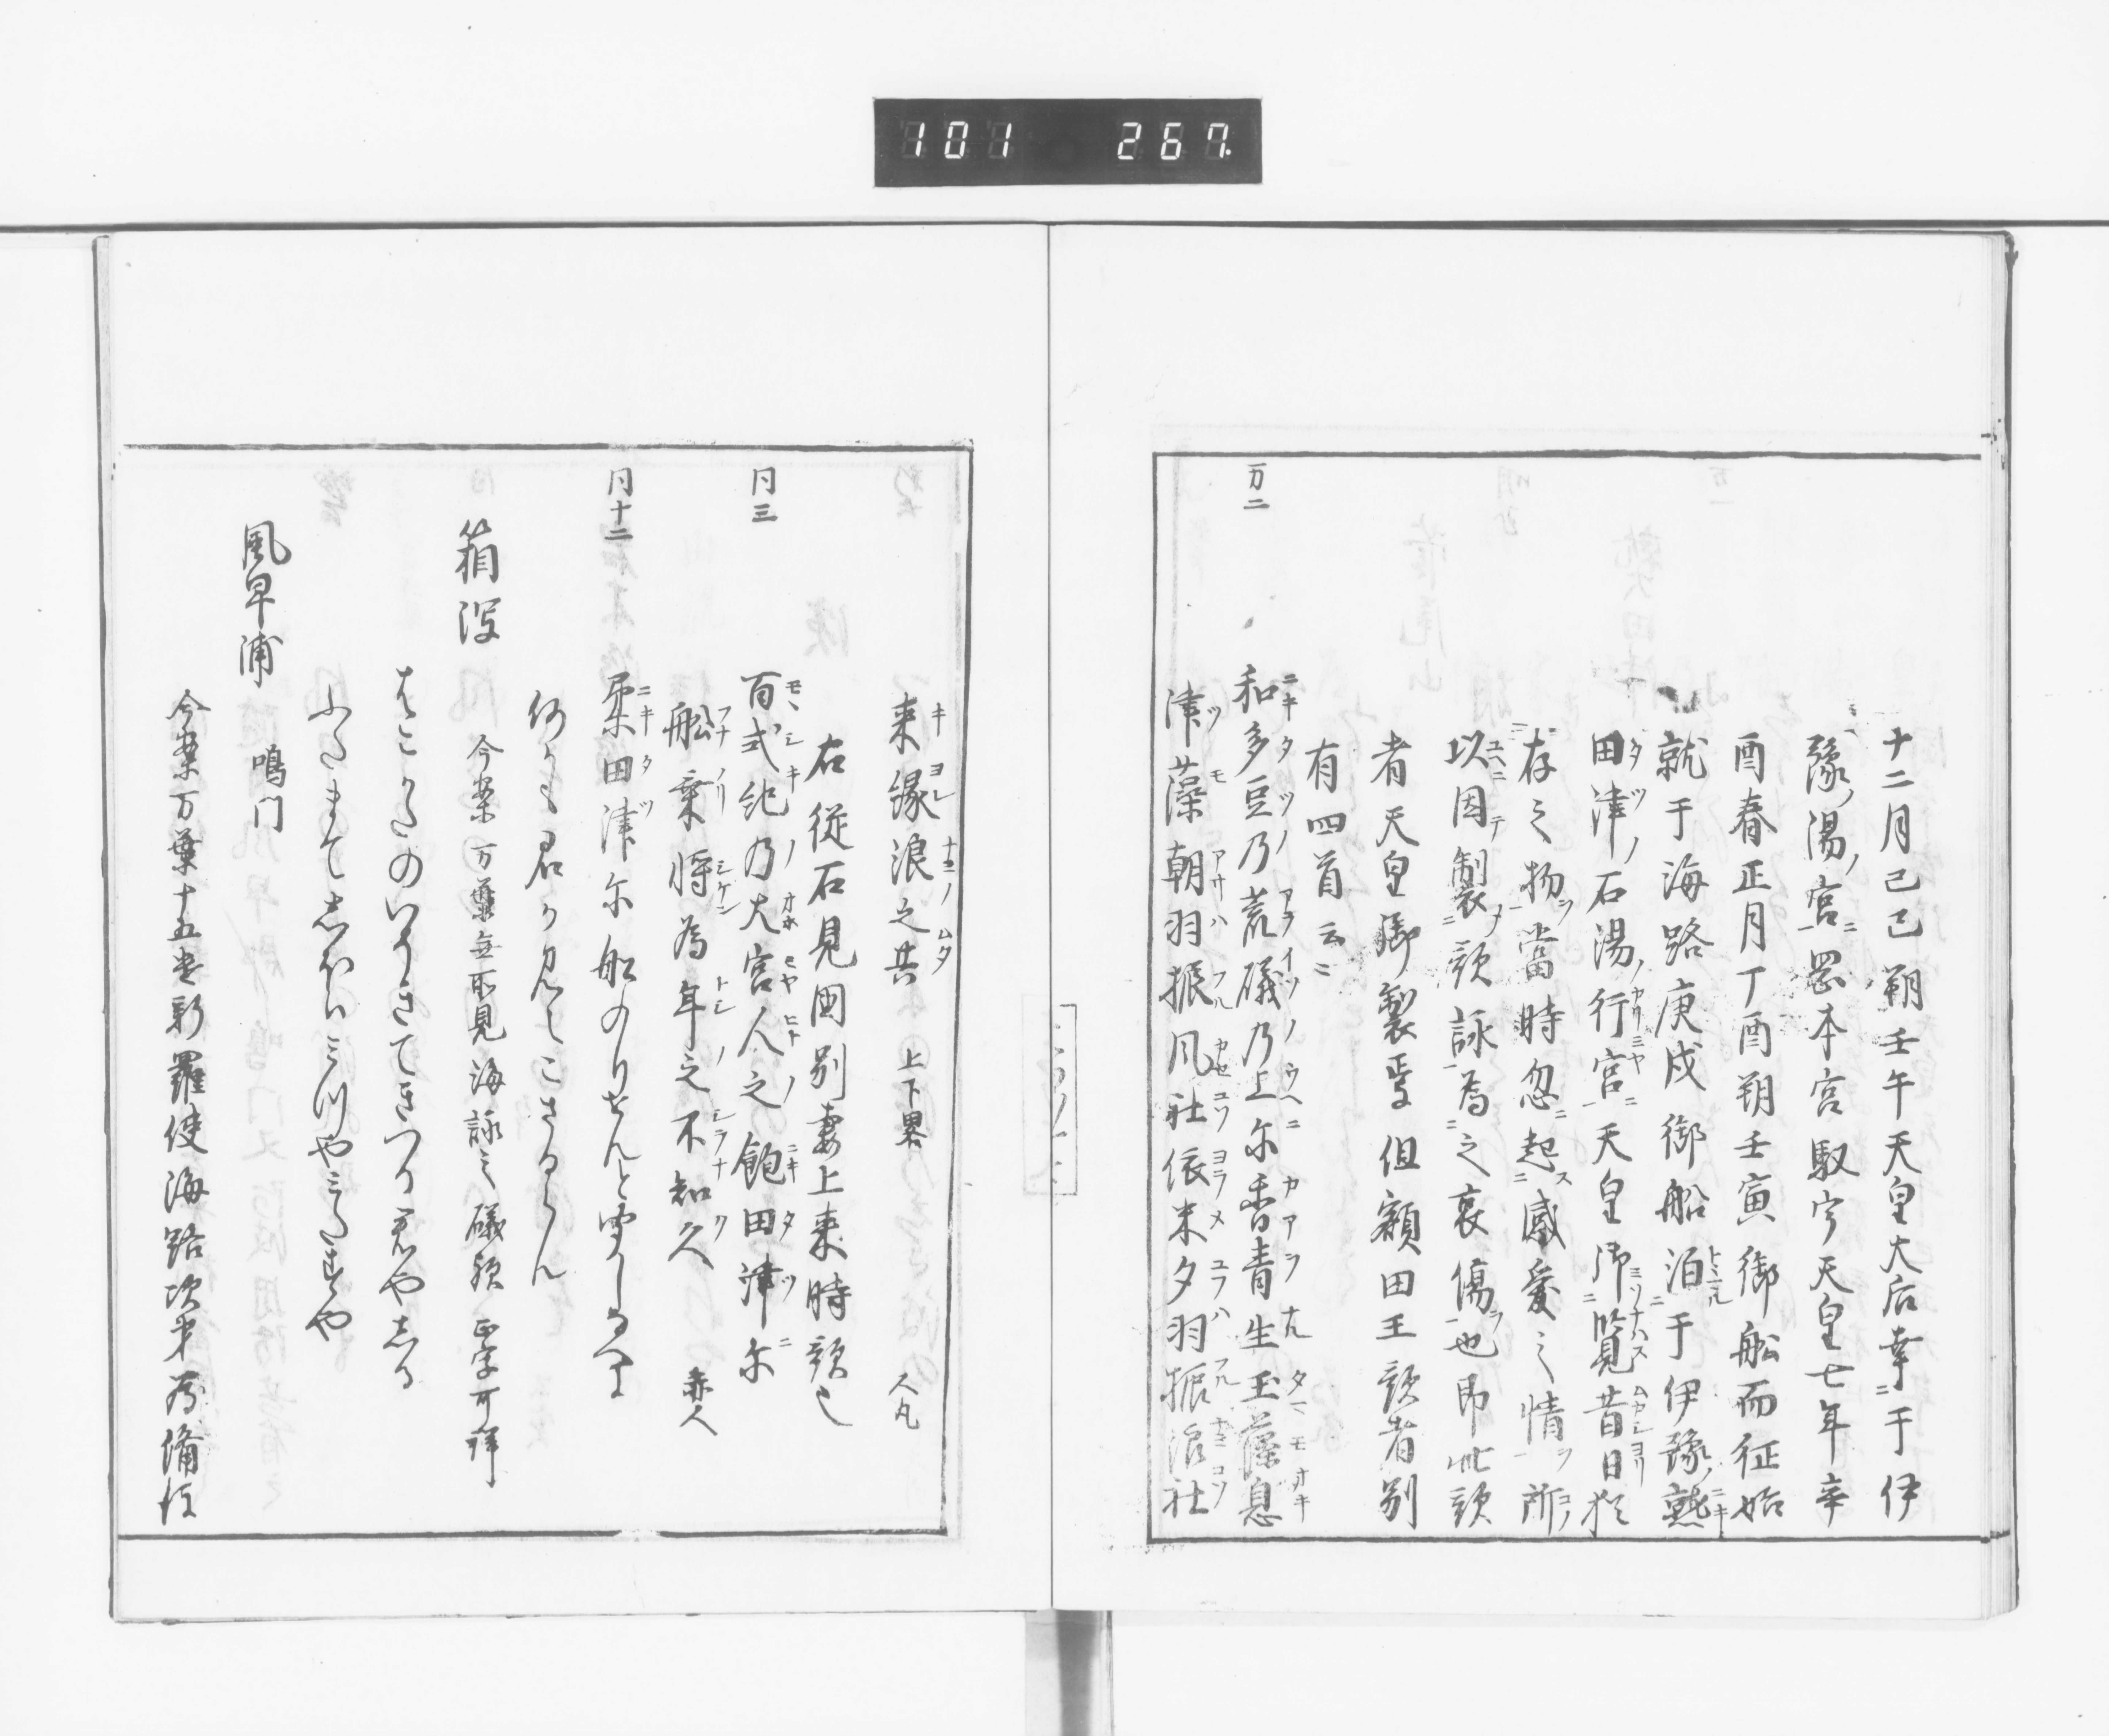 101 267
十二月己已朔壬午天皇大后幸于伊
豫湯宮岡本宮馭宇天皇七年辛
酉春正月丁酉朔壬寅御舩而征始
就于海路庚戌御船泊于伊豫熟
田津石湯行宮天皇御覧昔日猶
存之物當時忽起感愛之情所
以因製歌詠為之哀傷也即此歌
者天皇御製焉但額田王歌者別
有四首云〻
万二
和多豆乃荒礒乃上尓香青生玉藻息
津藻朝羽振風社依米夕羽振浪社
来縁浪之共 上下畧 人丸
右従石見國別妻上来時歌也
同三
百式紀乃大宮人之飽田津尓
舩乗将為年之不知久 赤人
同十二
柔田津尓舩のりせんと
何そも君か見えこさるらん
箱泻
今案万葉無所見海詠之礒歌正字可詳
はこかたの
風早浦 鳴門
今案万葉十五遣新羅使海路次第為備後